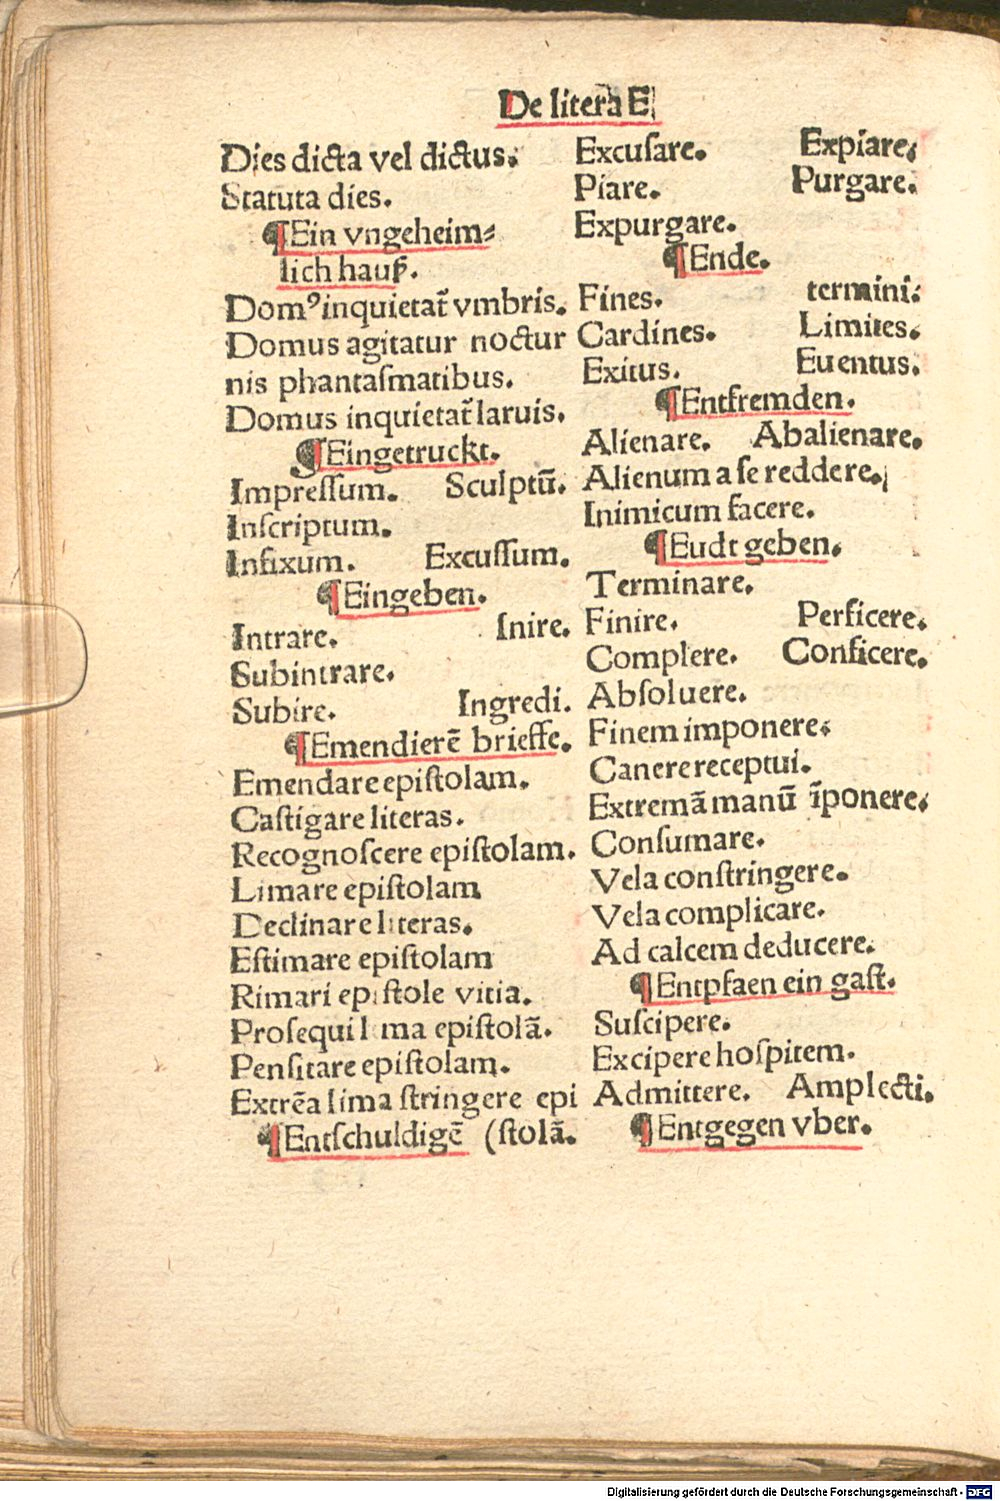 De litera E
Dies dicta vel dictus.
Statuta dies.
¶Ein vngeheim⸗
lich hauſz.
Domꝰ inquietat̄ vmbris.
Domus agitatur noctur
nis phantaſmatibus.
Domus inquietat̄ laruis.
¶Eingetruckt.
Impreſſum. Sculptū.
Inſcriptum.
Infixum. Excuſſum.
¶Eingeben.
Intrare. Inire.
Subintrare.
Subire. Ingredi.
¶Emendierē brieffe.
Emendare epiſtolam.
Caſtigare literas.
Recognoſcere epiſtolam.
Limare epiſtolam
Declinare literas.
Eſtimare epiſtolam
Rimari epiſtole vitia.
Prosequi lima epiſtolā.
Penſitare epiſtolam.
Extrēa lima ſtringere epi
¶Entſchuldigē (ſtolā.
Excuſare. Expiare.
Piare. Purgare.
Expurgare.
¶Ende.
Fines. termini.
Cardines. Limites.
Exitus. Euentus.
¶Entfremden.
Alienare. Abalienare.
Alienum a ſe reddere.
Inimicum facere.
¶Eudt geben.
Terminare.
Finire. Perficere.
Complere. Conficere.
Abſoluere.
Finem imponere.
Canere receptui.
Extremā manū īponere.
Conſumare.
Vela conſtringere.
Vela complicare.
Ad calcem deducere.
¶Entpfaen ein gaſt.
Suſcipere.
Excipere hoſpitem.
Admittere. Amplecti.
¶Entgegen vber.
Digitalisierung gefördert durch die Deutsche Forschungsgemeinschaft - DFG